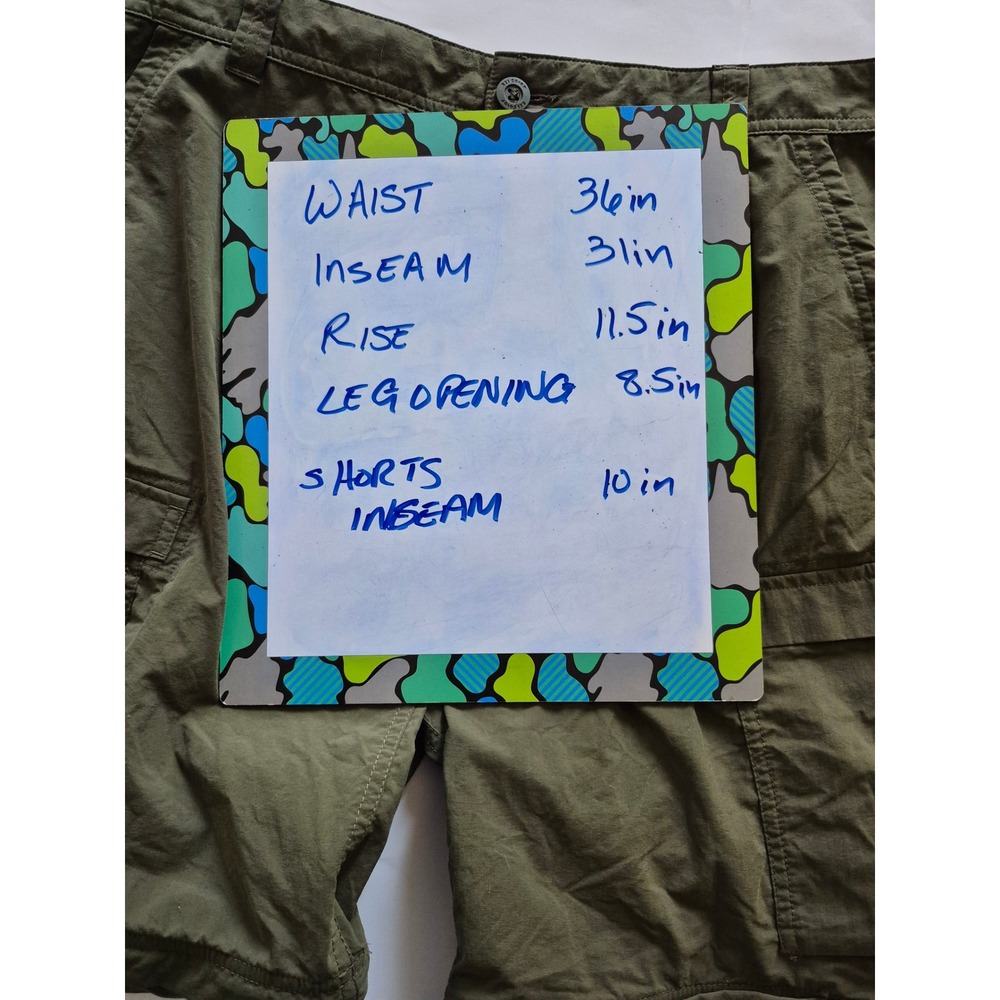 WAIST 36in
INSEAM 31in
RISE 11.5in
LEG OPENING 8.5in
SHORTS
INSEAM 10in